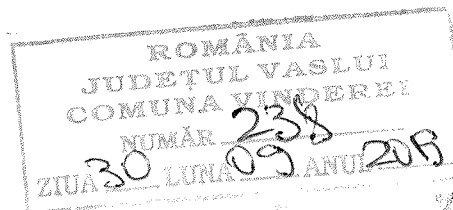 ROMÂNIA
JUDEȚUL VASLUI
COMUNA VINDEREI
NUMĂR 238
ZIUA 30 LUNA 09 ANUL